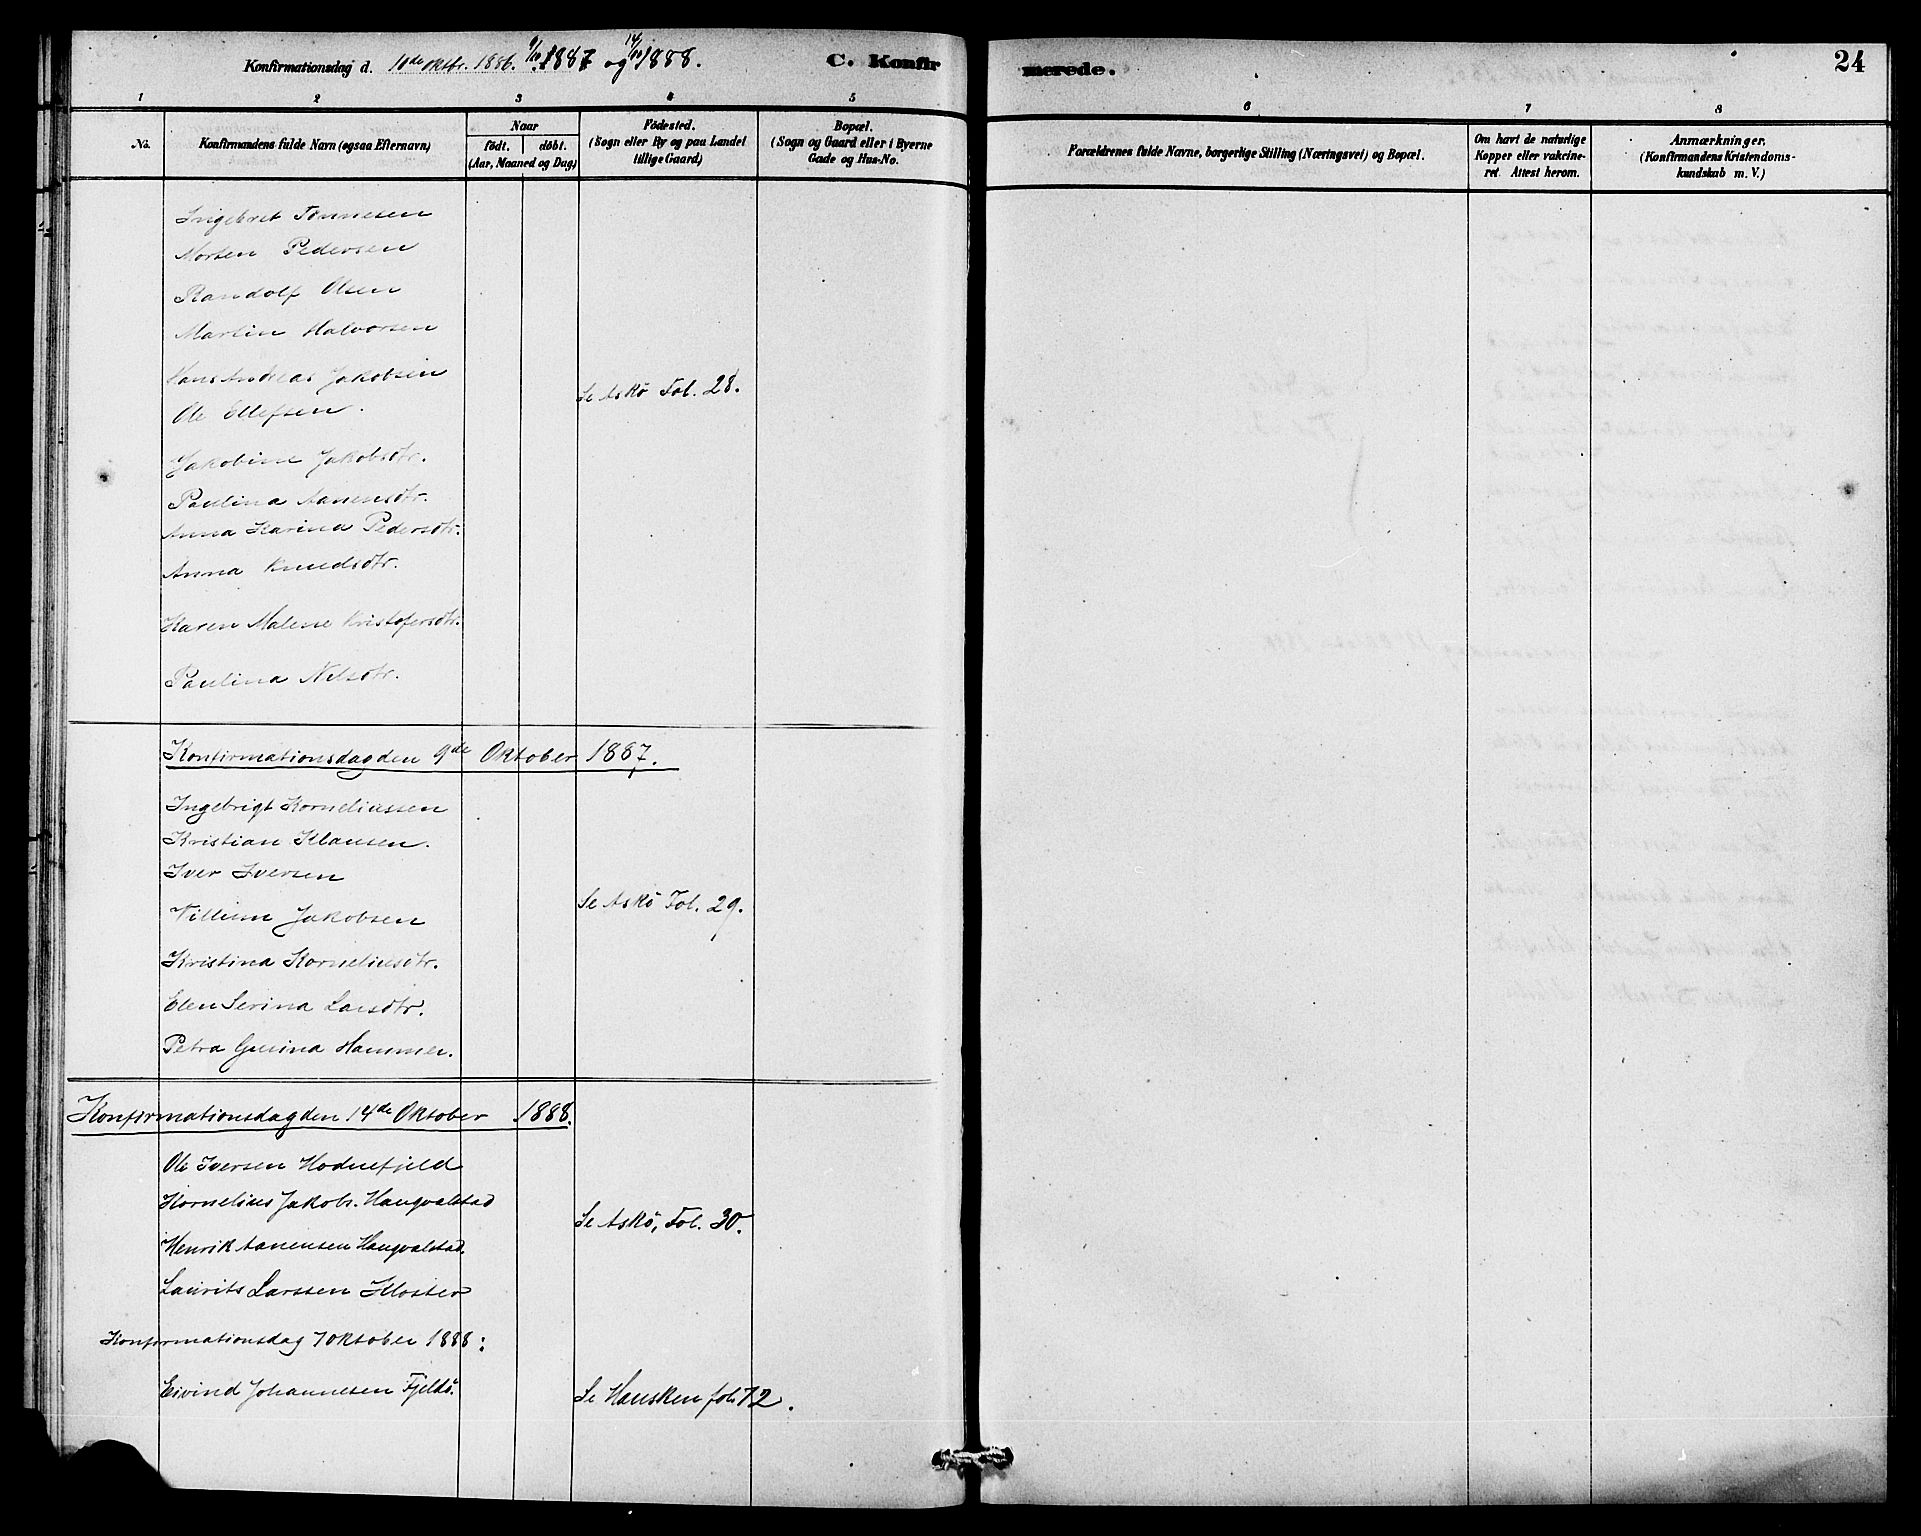 Konfirmationsdag d. 10de Oktbr. 1886. 9/10 1887 og 14/10 1888.
C. Konfirmerede.
24
1 2 3 4 5 6 7 8
No.
Konfirmandens fulde Navn (ogsaa Efternavn)
Naar
født. døbt.
(Aar, Maaned og Dag)
Fødested.
(Sogn eller By og paa Landet
tillige Gaard)
Bopæl.
(Sogn og Gaard eller i Byerne
Gade og Hus-No.
Forældrenes fulde Navne, borgerlige Stilling (Næringsvei) og Bopæl.
Om havt de naturlige
Kopper eller vakcine-
ret. Attest herom.
Anmærkninger.
(Konfirmandens Kristendoms-
kundskab m. V.)
Ingebret Tønnesen
Morten Pedersen
Randolf Olsen
Martin Halvorsen
Hans Andreas Jakobsen
Se Askø Fol. 28.
Ole Ellefsen.
Jakobine Jakobsdtr.
Paulina Aanensdtr.
Anna Karina Pedersdtr.
Anna Knudsdtr.
Karen Malene Kristofersdtr.
Paulina Nilsdtr.
Konfirmationsdag den 9de Oktober 1887.
Ingebrigt Korneliussen
Kristian Klausen.
Iver Iversen
Se Askø Fol. 29.
Villum Jakobsen
Kristina Korneliusdtr.
Elen Serina Larsdtr.
Petra Gurina Hammer.
Konfirmationsdag den 14de Oktober 1888.
Ole Iversen Hodnefjeld
Kornelius Jakobs. Haugvalstad
Se Askø, Fol. 30.
Henrik Aanensen Haugvalstad.
Laurits Larssen Kloster
Konfirmationsdag 7 Oktober 1888:
Eivind Johannesen Fjeldø.
Se Hausken fol. 72.